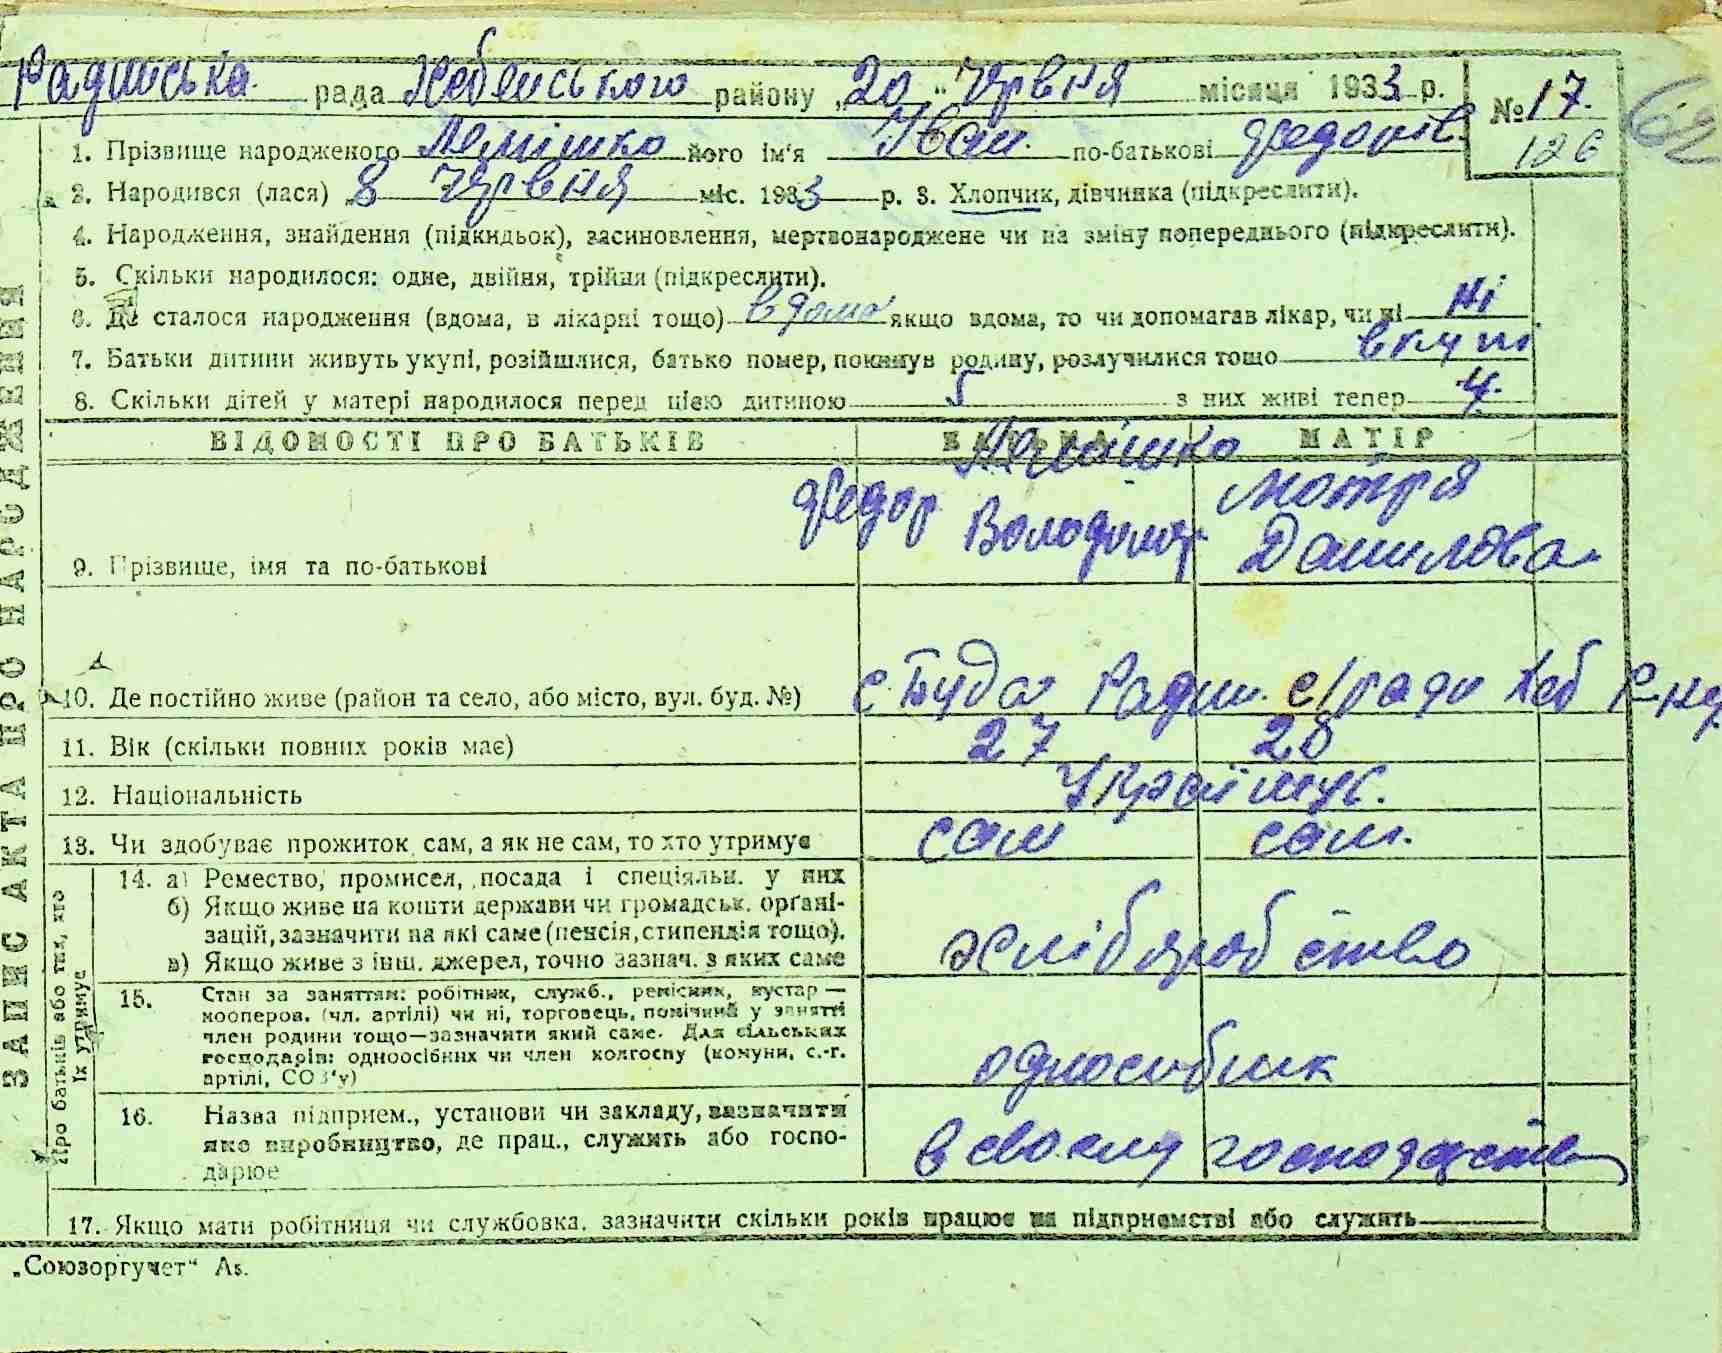 Радинська рада Хебенського району „20“ Червня місяця 1933 р.
№ 17.
126
62
1. Прізвище народженого Лемішко його ім'я Іван. по-батькові Федорів.
2. Народився (лася) 8 Червня міс. 1933 р. 3. Хлопчик, дівчинка (підкреслити).
4. Народження, знайдення (підкидьок), засиновлення, мертвонароджене чи на зміну попереднього (підкреслити).
5. Скільки народилося: одне, двійня, трійня (підкреслити).
6. Де сталося народження (вдома, в лікарні тощо) вдома якщо вдома, то чи допомагав лікар, чи ні Ні
7. Батьки дитини живуть укупі, розійшлися, батько помер, покинув родину, розлучилися тощо вкупі
8. Скільки дітей у матері народилося перед цією дитиною 5 з них живі тепер 4.
ВІДОМОСТІ ПРО БАТЬКІВ БАТЬКА МАТІР
Лемішко
Федор Володимир Мотря
Данилова
9. Прізвище, імя та по-батькові
10. Де постійно живе (район та село, або місто, вул. буд. №) с Буда Радин. с/ради Хеб
11. Вік (скільки повних років має) 27 28
12. Національність Україн
13. Чи здобуває прожиток сам, а як не сам, то хто утримує сам сам.
14. а) Ремество, промисел, посада і спеціяльн. у них
б) Якщо живе на кошти держави чи громадськ. орґані-
зацій, зазначити на які саме (пенсія, стипендія тощо).
в) Якщо живе з інш. джерел, точно зазнач. з яких саме
хліборобство
15. Стан за заняттям: робітник, служб., ремісник, кустар —
кооперов. (чл. артілі) чи ні, торговець, помічний у занятті
член родини тощо—зазначити який саме. Для сільських
господарів: одноосібник чи член колгоспу (комуни, с.-г.
артілі, СОЗ'у)
односібник
16. Назва підприєм., установи чи закладу, зазначити
яке виробництво, де прац., служить або госпо-
дарює
в своєму господарстві
17. Якщо мати робітниця чи службовка, зазначити скільки років працює на підприємстві або служить
ЗАПИС АКТА ПРО НАРОДЖЕННЯ
Про батьків або тих, хто
їх утримує
„Союзоргучет“ А5.